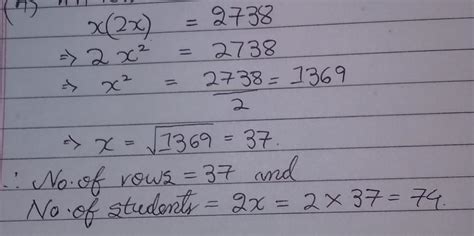 x(2x) = 2738
⇒ 2x² = 2738
⇒ x² = 2738/2 = 1369
⇒ x = √1369 = 37.
∴ No. of rows = 37 and
No. of students = 2x = 2 × 37 = 74.